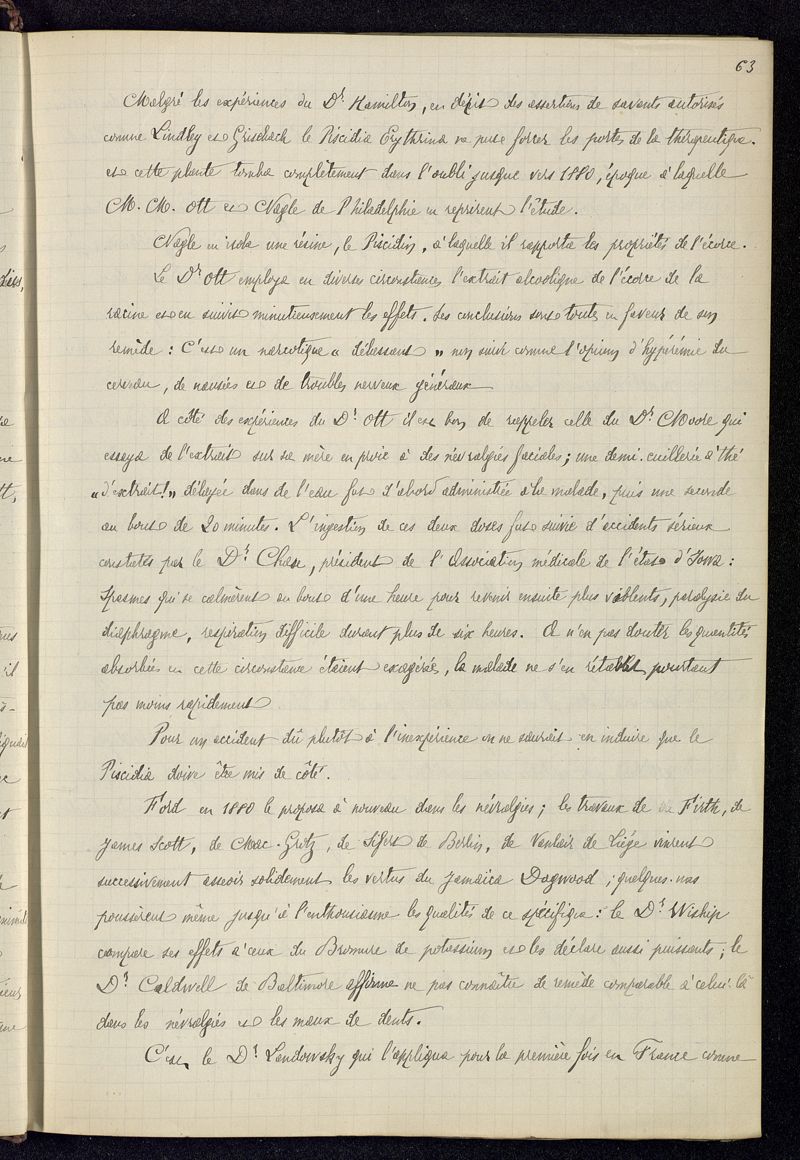 63
Malgré les expériences du Dr Hamilton, en dépit des assertions de savants autorisés
comme Lindley et Grisebach le Piscidia Erythrina ne put forcer les portes de la thérapeutique.
et cette plante tomba complètement dans l'oubli jusque vers 1880, époque à laquelle
M. M. Ott et Nagle de Philadelphie en reprirent l'étude.
Nagle en isola une résine, le Piscidin, à laquelle il rapporta les propriétés de l'écorce.
Le Dr Ott employa en diverses circonstances l'extrait alcoolique de l'écorce de la
racine et en suivit minutieusement les effets. Ses conclusions sont toutes en faveur de son
remède : C'est un narcotique « délassant » non suivi comme l'opium d'hypérémie du
cerveau, de nausées et de troubles nerveux généraux
A côté des expériences du Dr Ott il est bon de rappeler celle du Dr Moore qui
essaya de l'extrait sur sa mère en proie à des névralgies faciales ; une demi-cuillerée à thé
« d'extrait ! » délayée dans de l'eau fut d'abord administrée à la malade, puis une seconde
au bout de 20 minutes. L'ingestion de ces deux doses fut suivie d'accidents sérieux
constatés par le Dr Chase, président de l'Association médicale de l'état d'Iowa :
Spasmes qui se calmèrent au bout d'une heure pour revenir ensuite plus violents, paralysie du
diaphragme, respiration difficile durant plus de six heures. A n'en pas douter les quantités
absorbées en cette circonstance étaient exagérées, la malade ne s'en rétablit pourtant
pas moins rapidement
Pour un accident dû plutôt à l'inexpérience on ne saurait en induire que le
Piscidia doive être mis de côté.
Ford en 1880 le proposa à nouveau dans les névralgies ; les travaux de Firth, de
James Scott, de Mac-Grotz, de Sifers de Berlin, de Vanlair de Liège vinrent
successivement asseoir solidement les vertus du Jamaica Dogwood ; quelques-uns
poussèrent même jusqu'à l'enthousiasme les qualités de ce spécifique : le Dr Wiship
compare ses effets à ceux du Bromure de potassium et les déclare aussi puissants ; le
Dr Caldwell de Baltimore affirme ne pas connaître de remède comparable à celui-là
dans les névralgies et les maux de dents.
C'est le Dr Landowsky qui l'appliqua pour la première fois en France comme